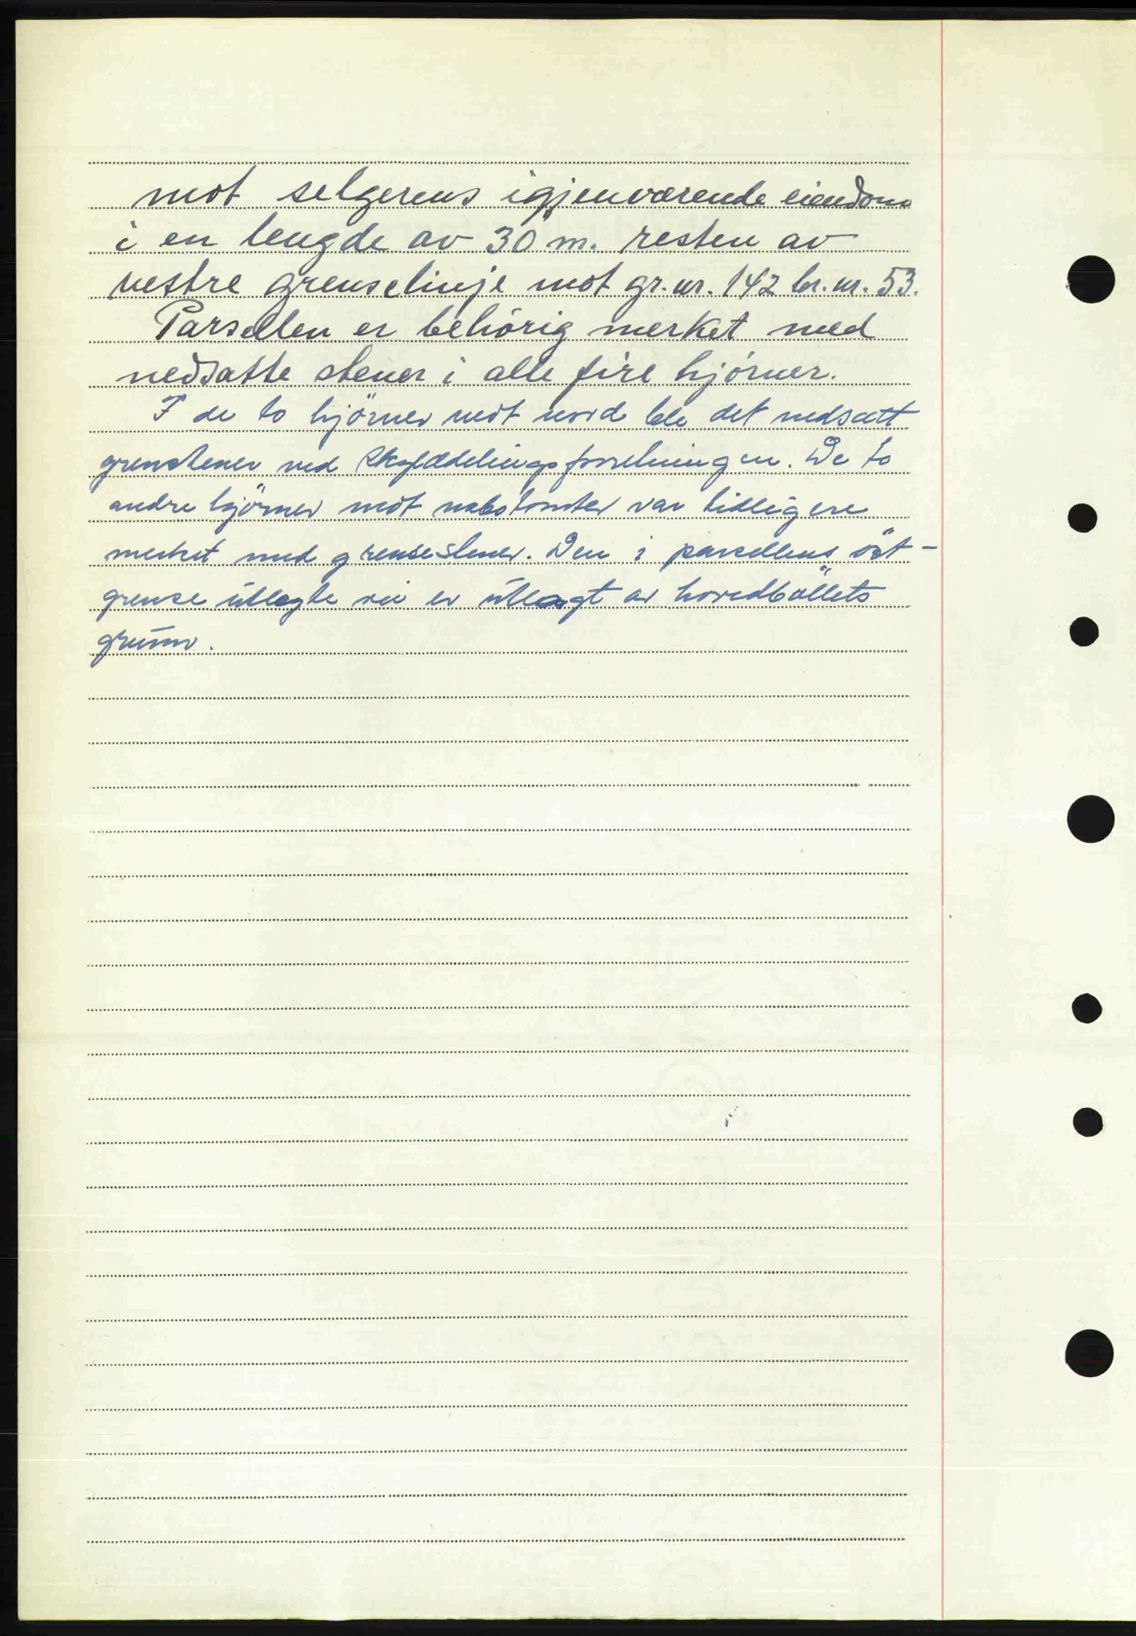 mot selgerens igjenværende eiendom
i en lengde av 30 m. resten av
vestre grenselinje mot gr. nr. 142 br. nr. 53.
Parsellen er behörig merket med
nedsatte stener i alle fire hjörner.
I de to hjörner mot nord ble det nedsatt
grenstener ved skylddelingsforretningen. De to
andre hjörner mot nabotomter var tidligere
merket med grensestener. Den i parsellens öst-
grense utlagte vei er utlagt av hovedbölets
grunn.